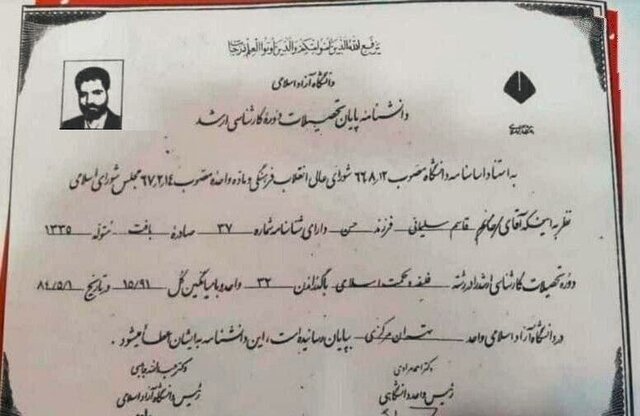 یرفع الله الذین آمنوا منکم والذین اوتوا العلم درجات
دانشگاه آزاد اسلامی
دانشنامه پایان تحصیلات دوره کارشناسی ارشد
به استناد اساسنامه دانشگاه مصوب ۶۶٫۸٫۱۲ شورای عالی انقلاب فرهنگی و ماده واحده مصوب ۶۷٫۲٫۱۴ مجلس شورای اسلامی
نظر به اینکه آقای/خانم قاسم سلیمانی فرزند حسن دارای شناسنامه شماره ۳۷ صادره بافت متولد ۱۳۳۵
دوره تحصیلات کارشناسی ارشد را در رشته فلسفه و حکمت اسلامی با گذراندن ۳۲ واحد و با میانگین کل ۱۵/۹۱ و در تاریخ ۸۴/۵/۱
در دانشگاه آزاد اسلامی واحد تهران مرکزی بپایان رسانیده است، این دانشنامه به ایشان اعطاء میشود .
دکتر احمد مرادی
رئیس واحد دانشگاهی
دکتر عبدالله جاسبی
رئیس دانشگاه آزاد اسلامی